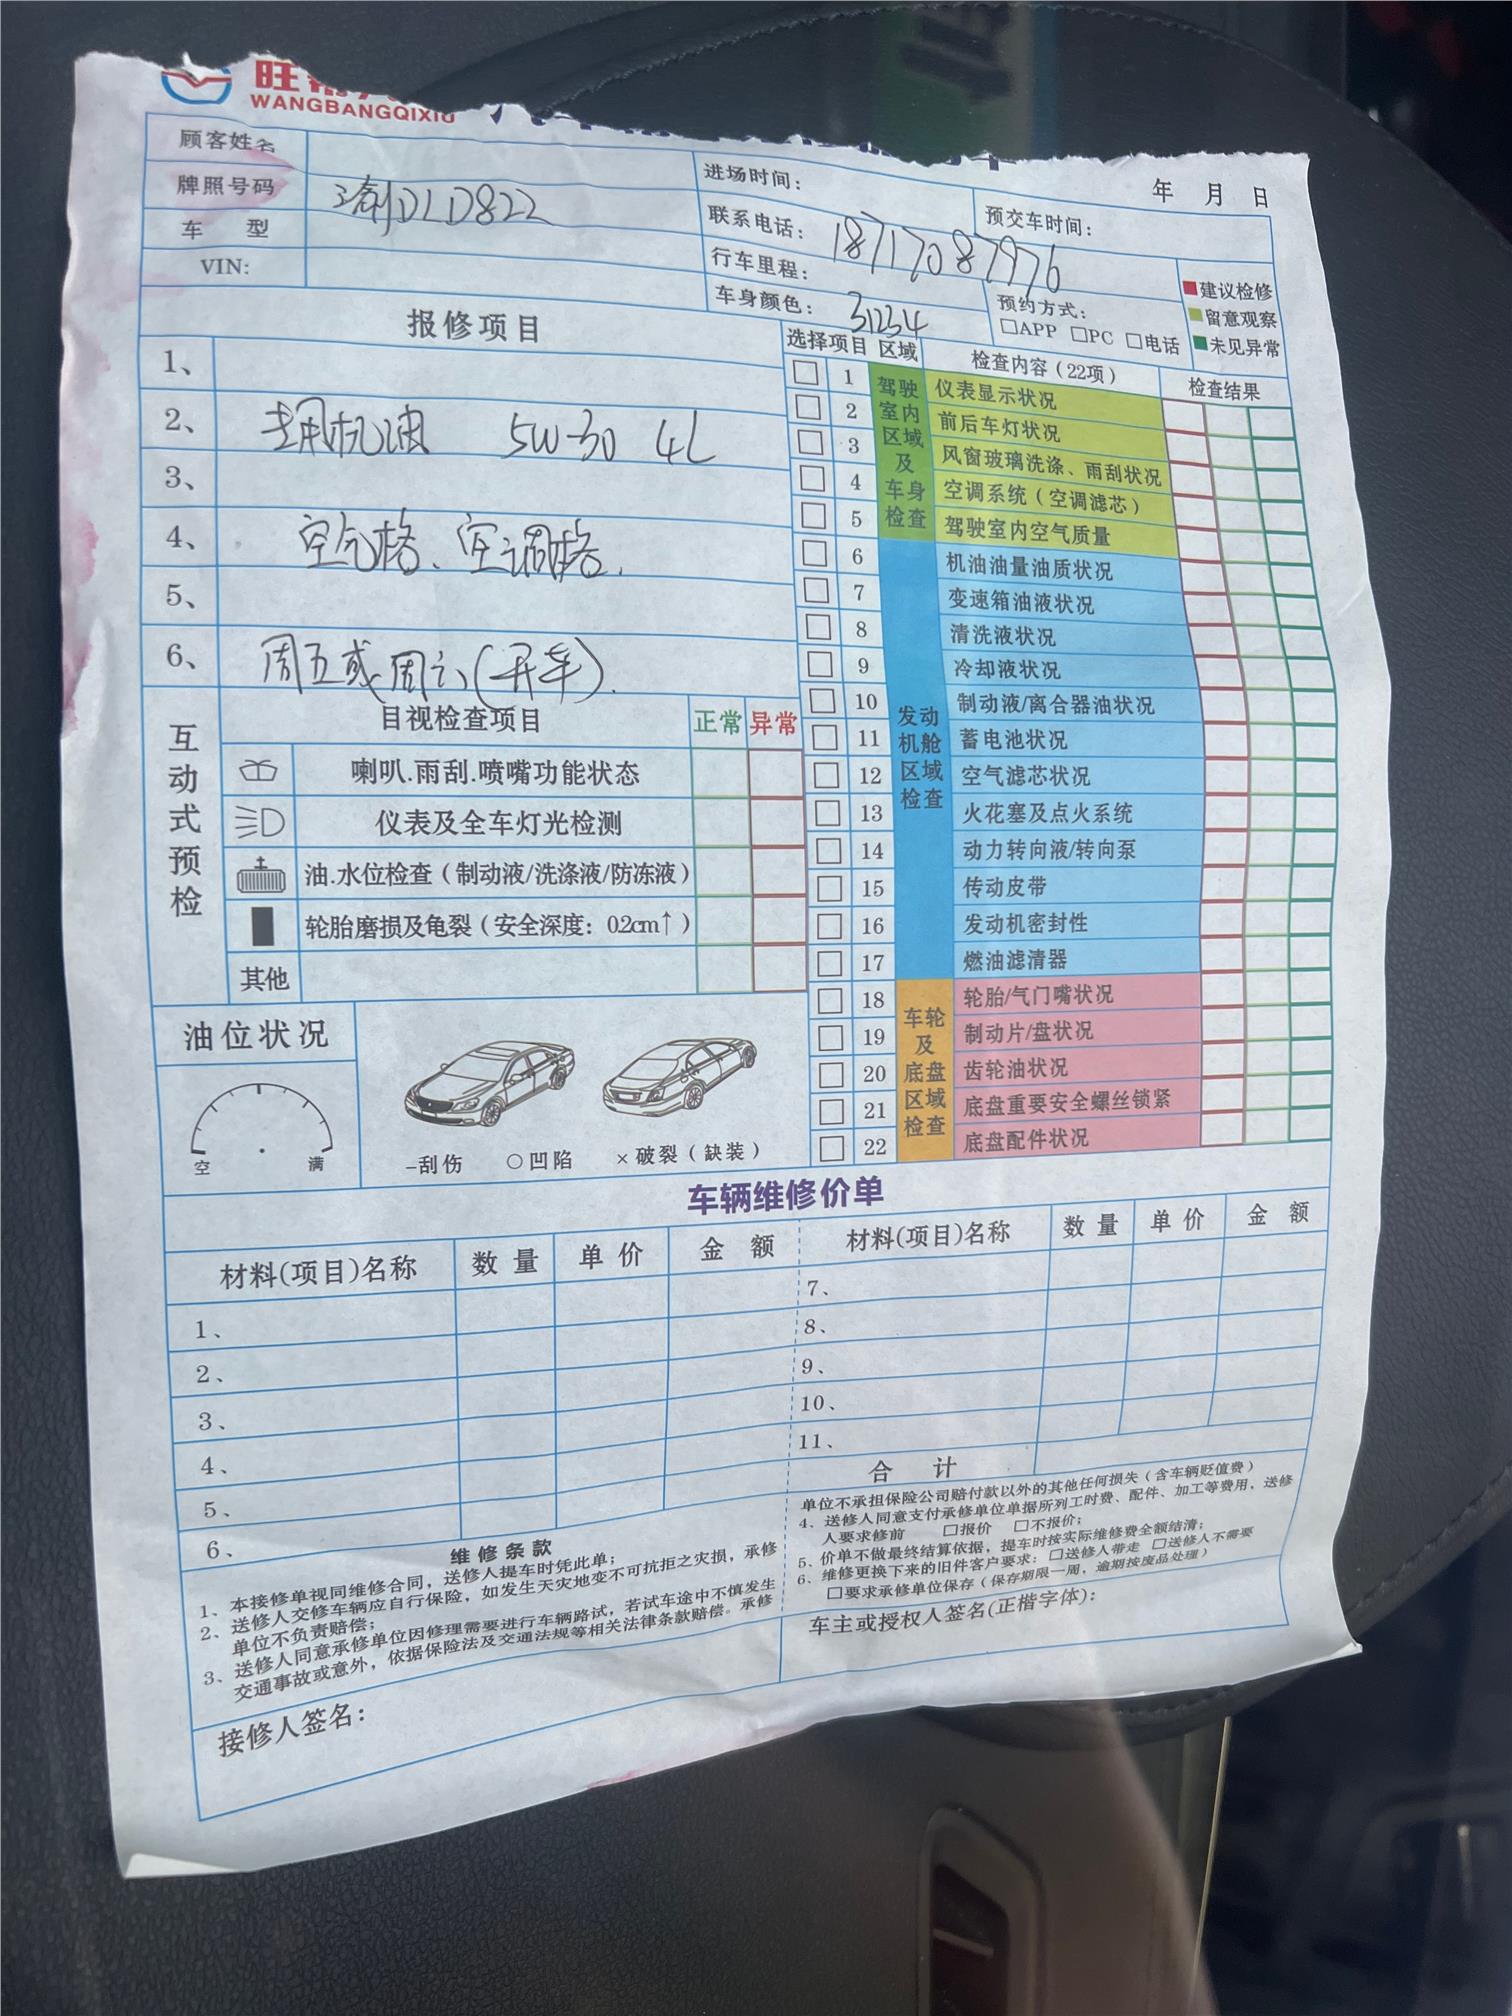 WANGBANGQIXIU
年 月 日
顾客姓名
进场时间：
预交车时间：
牌照号码 渝DLD822
联系电话： 18717087976
车 型
行车里程： 31234
预约方式：
□APP □PC □电话
VIN:
车身颜色：
建议检修
留意观察
未见异常
报修项目
1、
2、 机油 5W-30 4L
3、
4、 空气格、空调格.
5、
6、 周五或周六(开车).
选择项目 区域 检查内容（22项） 检查结果
驾驶室内区域及车身检查
1 仪表显示状况
2 前后车灯状况
3 风窗玻璃洗涤、雨刮状况
4 空调系统（空调滤芯）
5 驾驶室内空气质量
发动机舱区域检查
6 机油油量油质状况
7 变速箱油液状况
8 清洗液状况
9 冷却液状况
10 制动液/离合器油状况
11 蓄电池状况
12 空气滤芯状况
13 火花塞及点火系统
14 动力转向液/转向泵
15 传动皮带
16 发动机密封性
17 燃油滤清器
车轮及底盘区域检查
18 轮胎/气门嘴状况
19 制动片/盘状况
20 齿轮油状况
21 底盘重要安全螺丝锁紧
22 底盘配件状况
互动式预检
目视检查项目 正常 异常
喇叭.雨刮.喷嘴功能状态
仪表及全车灯光检测
油.水位检查（制动液/洗涤液/防冻液）
轮胎磨损及龟裂（安全深度：02cm↑）
其他
油位状况
空 满
-刮伤 ○凹陷 ×破裂（缺装）
车辆维修价单
材料(项目)名称 数量 单价 金额 材料(项目)名称 数量 单价 金额
1、
2、
3、
4、
5、
6、
7、
8、
9、
10、
11、
合 计
维修条款
1、本接修单视同维修合同，送修人提车时凭此单；
2、送修人交修车辆应自行保险，如发生天灾地变不可抗拒之灾损，承修
单位不负责赔偿；
3、送修人同意承修单位因修理需要进行车辆路试，若试车途中不慎发生
交通事故或意外，依据保险法及交通法规等相关法律条款赔偿。承修
单位不承担保险公司赔付款以外的其他任何损失（含车辆贬值费）
4、送修人同意支付承修单位单据所列工时费、配件、加工等费用，送修
人要求修前 □报价 □不报价；
5、价单不做最终结算依据，提车时按实际维修费全额结清；
6、维修更换下来的旧件客户要求：□送修人带走 □送修人不需要
□要求承修单位保存（保存期限一周，逾期按废品处理）
接修人签名：
车主或授权人签名(正楷字体)：